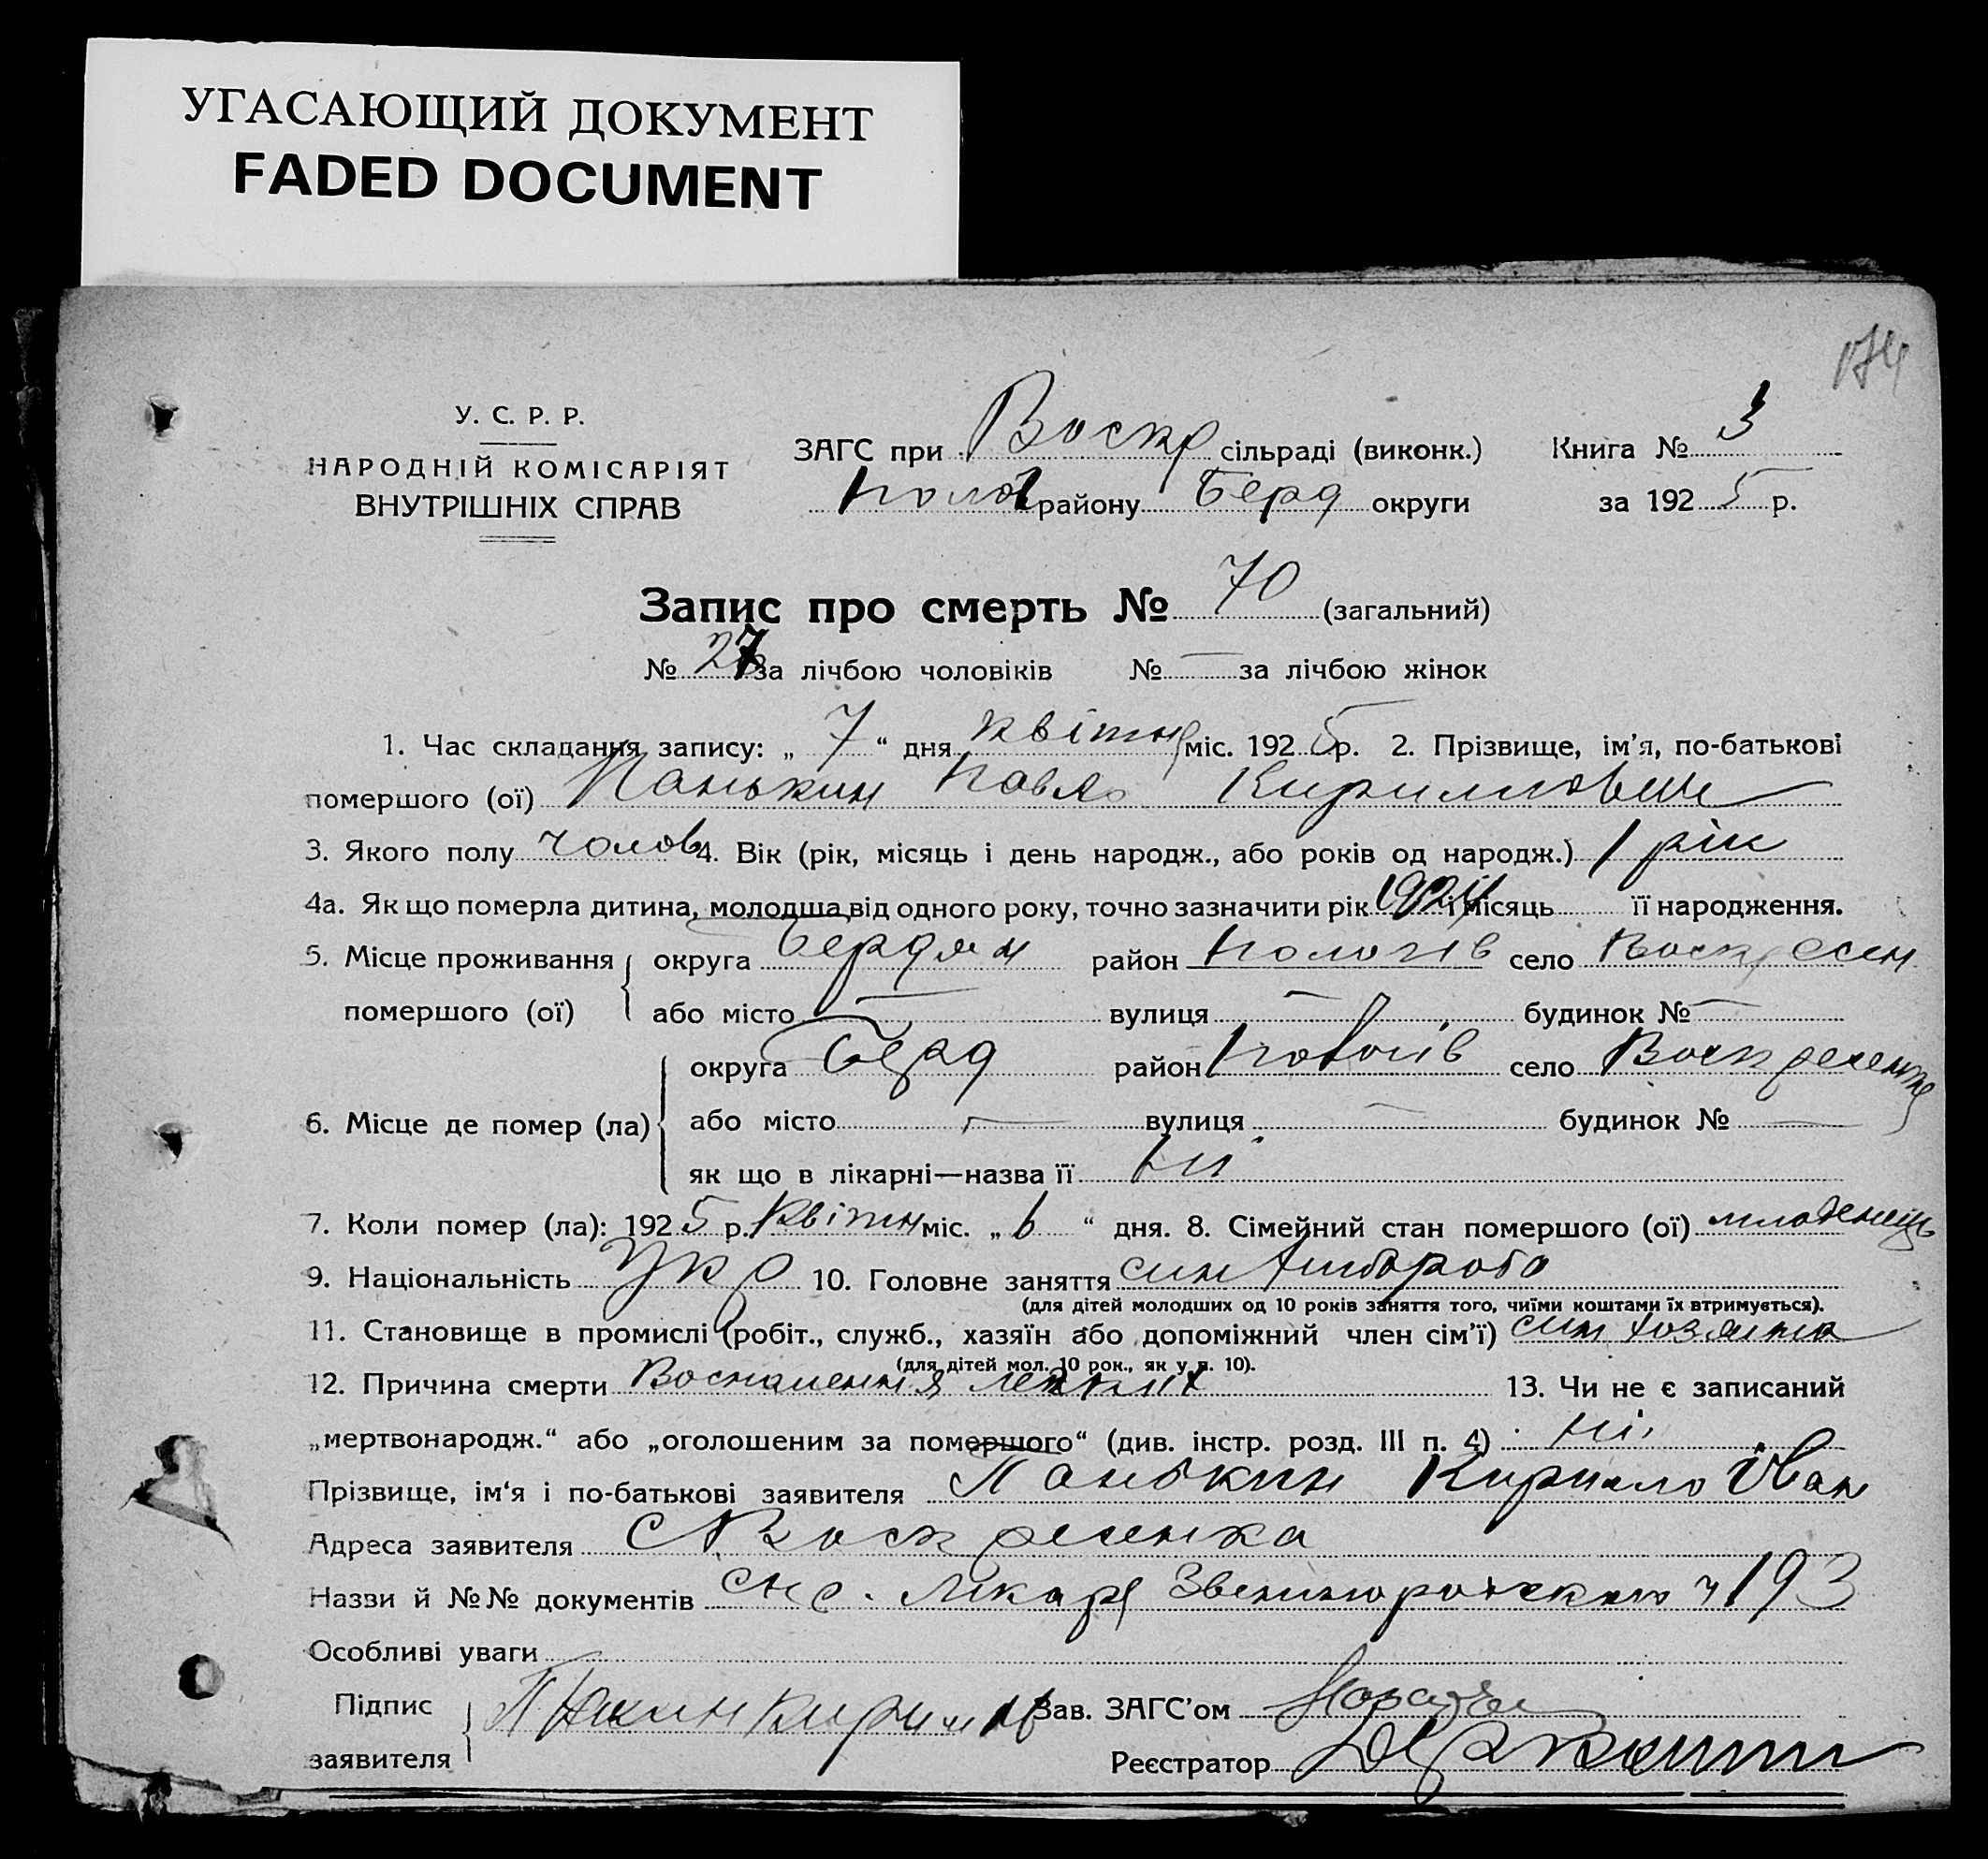 УГАСАЮЩИЙ ДОКУМЕНТ
FADED DOCUMENT
174
У. С. Р. Р.
НАРОДНІЙ КОМІСАРІЯТ
ВНУТРІШНІХ СПРАВ
ЗАГС при Воскр сільраді (виконк.) Книга № 3
Полог району Берд округи за 1925 р.
Запис про смерть № 70 (загальний)
№ 27 за лічбою чоловіків № — за лічбою жінок
1. Час складання запису: „ 7 “ дня квітня міс. 1925 р. 2. Прізвище, ім’я, по-батькові
помершого (ої) Панькин Павло Кириллович
3. Якого полу чолов 4. Вік (рік, місяць і день народж., або років од народж.) 1 рік
4а. Як що померла дитина, молодша від одного року, точно зазначити рік 1924 і місяць її народження.
5. Місце проживання помершого (ої) округа Бердян район Пологів село Воскресен
або місто — вулиця — будинок № —
6. Місце де помер (ла) округа Берд район Пологів село Воскресенка
або місто — вулиця — будинок № —
як що в лікарні—назва її ні
7. Коли помер (ла): 1925 р. квітн міс. „ 6 “ дня. 8. Сімейний стан помершого (ої) младенець
9. Національність Укр 10. Головне заняття син хлібороба
(для дітей молодших од 10 років заняття того, чиїми коштами їх втримується).
11. Становище в промислі (робіт., служб., хазяїн або допоміжний член сім’ї) син хозяїна
(для дітей мол. 10 рок., як у п. 10).
12. Причина смерти Воспаления легких 13. Чи не є записаний
„мертвонародж.“ або „оголошеним за помершого“ (див. інстр. розд. III п. 4) ні
Прізвище, ім‘я і по-батькові заявителя Панькин Кирило Іван
Адреса заявителя С Воскресенка
Назви й №№ документів спр. лікаря Звенигородского ч 193
Особливі уваги
Підпис заявителя Кирил
Зав. ЗАГС’ом
Реєстратор